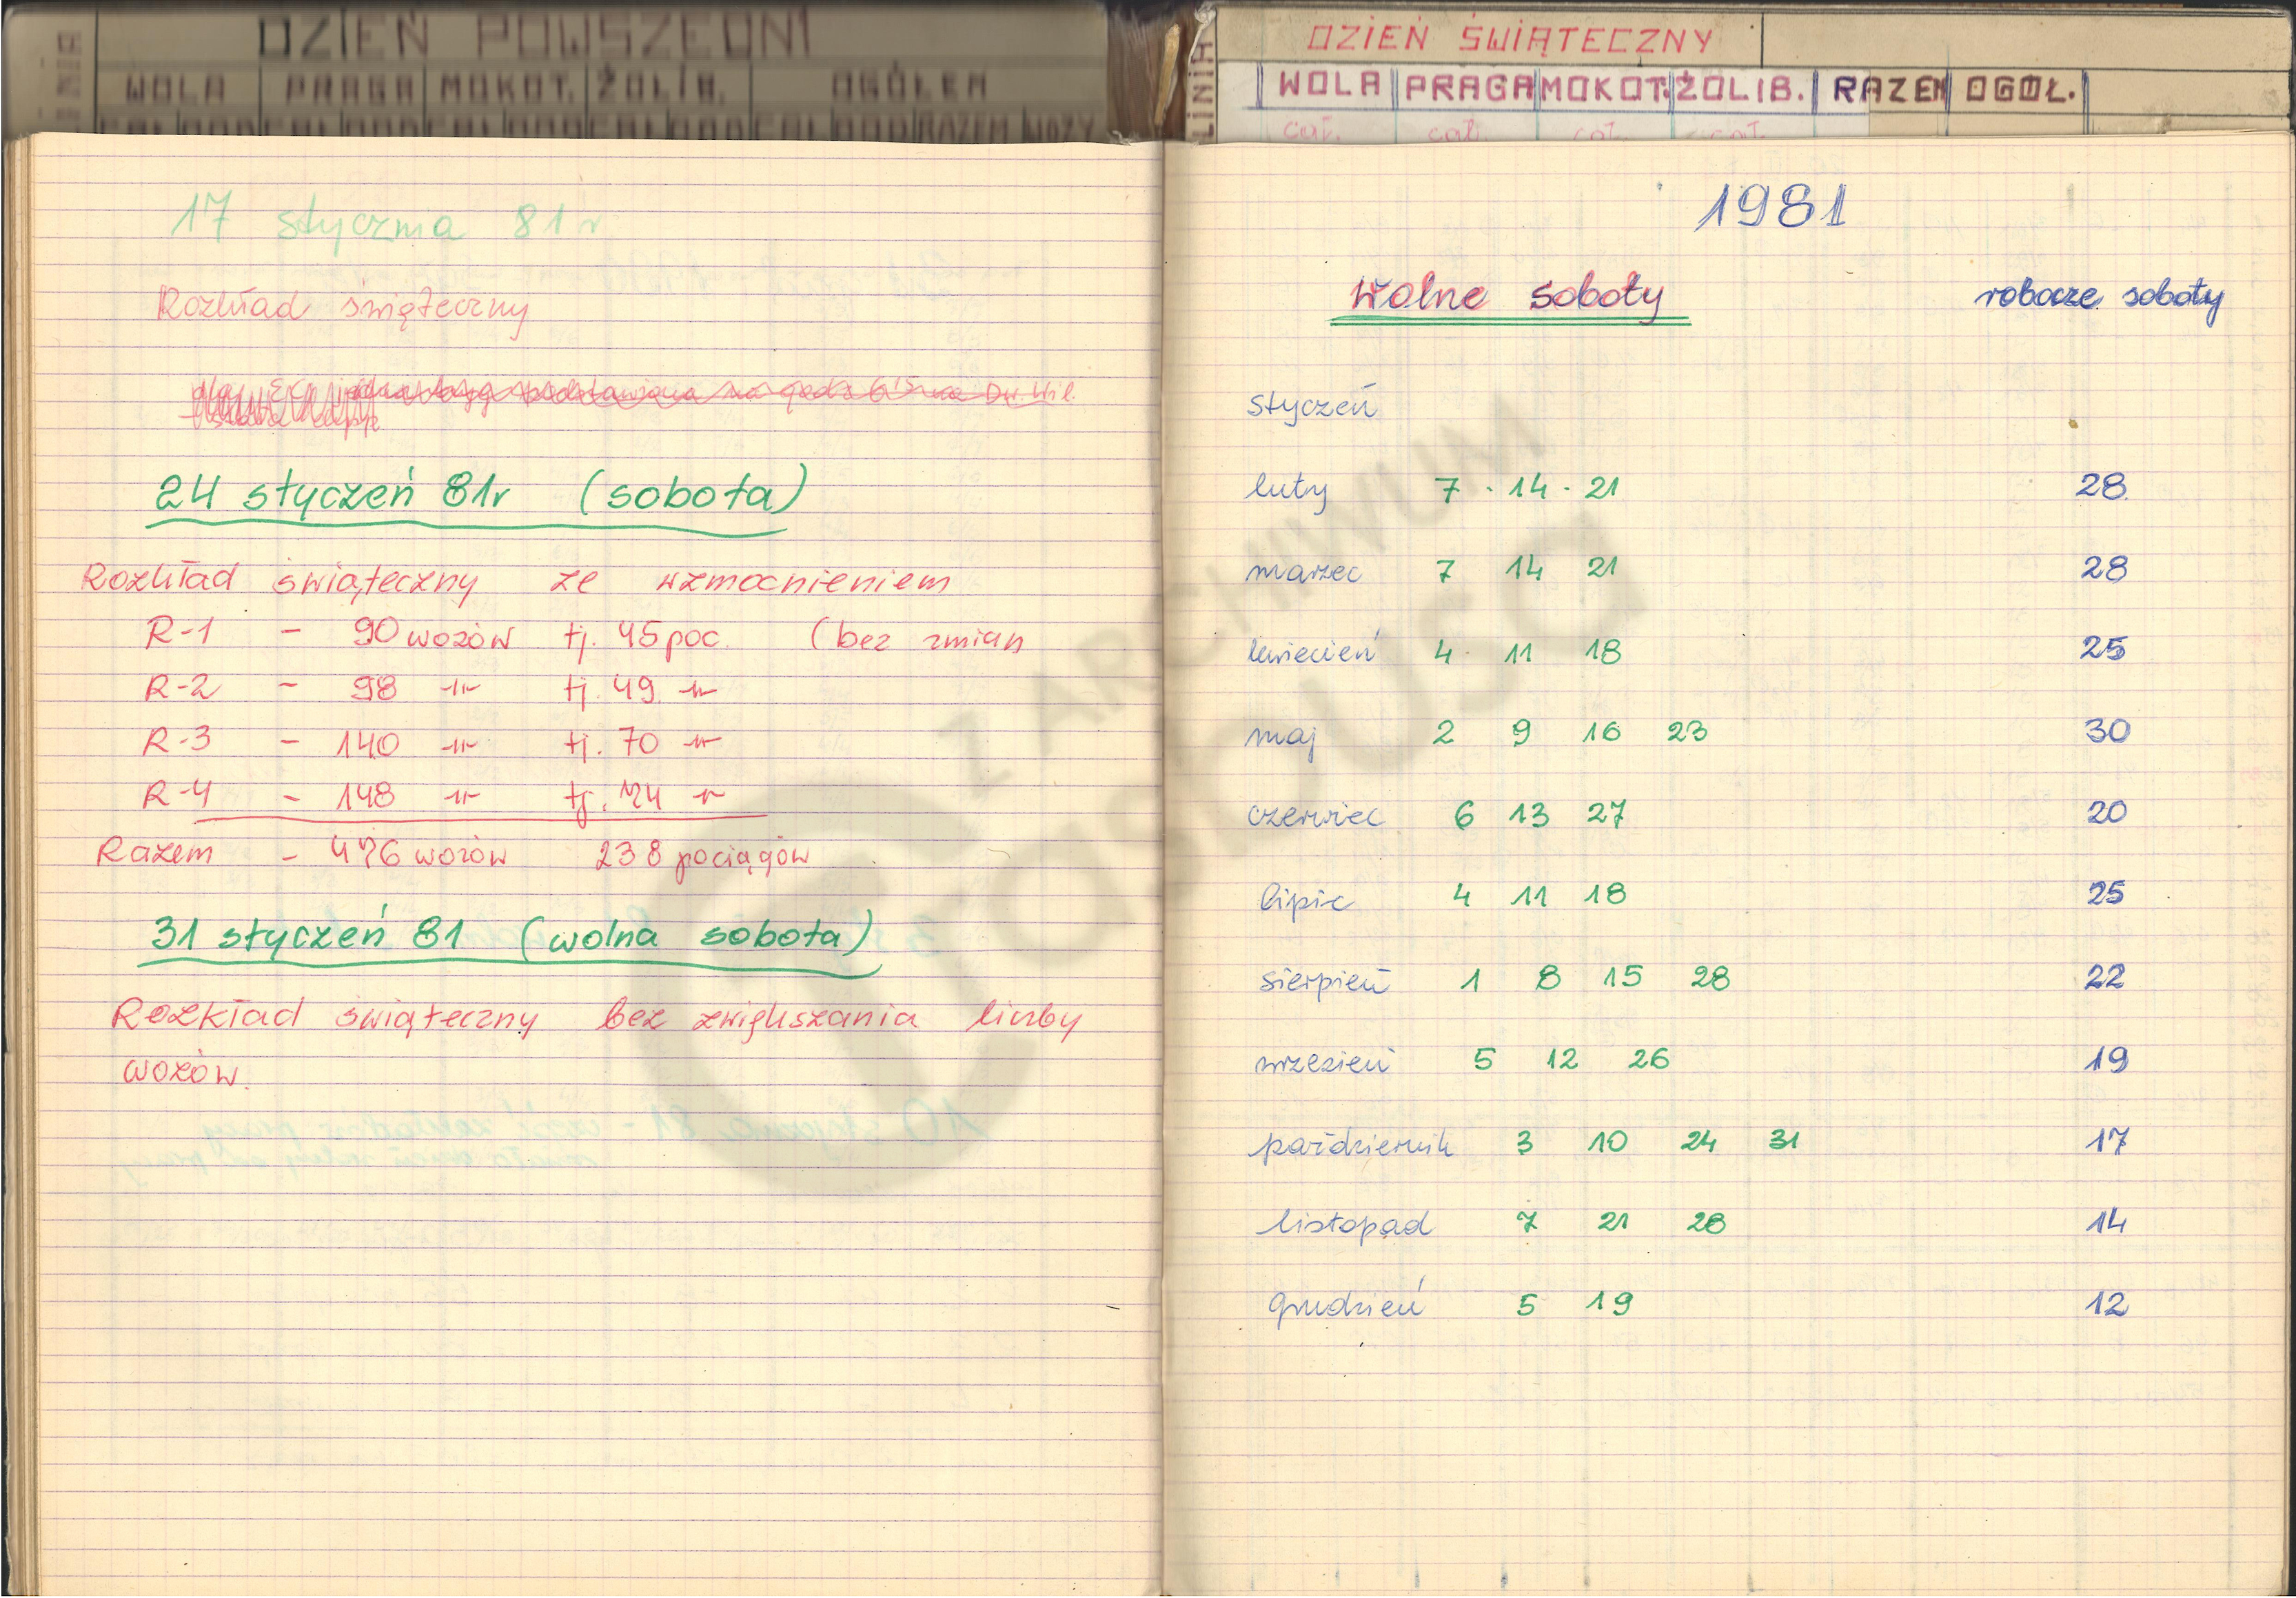 DZIEŃ POWSZEDNI
WOLA PRAGA MOKOT. ŻOLIB. OGÓŁEM
17 stycznia 81 r
Rozkład świąteczny
Dw. Wil.
24 styczeń 81r (sobota)
Rozkład świąteczny ze wzmocnieniem
R-1 - 90 wozów tj. 45 poc. (bez zmian
R-2 - 98 -11- tj. 49 -11-
R-3 - 140 -11- tj. 70 -11-
R-4 - 148 -11- tj. 74 -11-
Razem - 476 wozów 238 pociągów
31 styczeń 81 (wolna sobota)
Rozkład świąteczny bez zwiększania liczby
wozów.
LINIA
DZIEŃ ŚWIĄTECZNY
WOLA PRAGA MOKOT. ŻOLIB. RAZEM OGÓŁ.
cał. cał. cał. cał.
1981
Wolne soboty robocze soboty
styczeń
luty 7 · 14 · 21 28
marzec 7 14 21 28
kwiecień 4 11 18 25
maj 2 9 16 23 30
czerwiec 6 13 27 20
lipiec 4 11 18 25
sierpień 1 8 15 28 22
wrzesień 5 12 26 19
październik 3 10 24 31 17
listopad 7 21 28 14
grudzień 5 19 12
Z ARCHIWUM